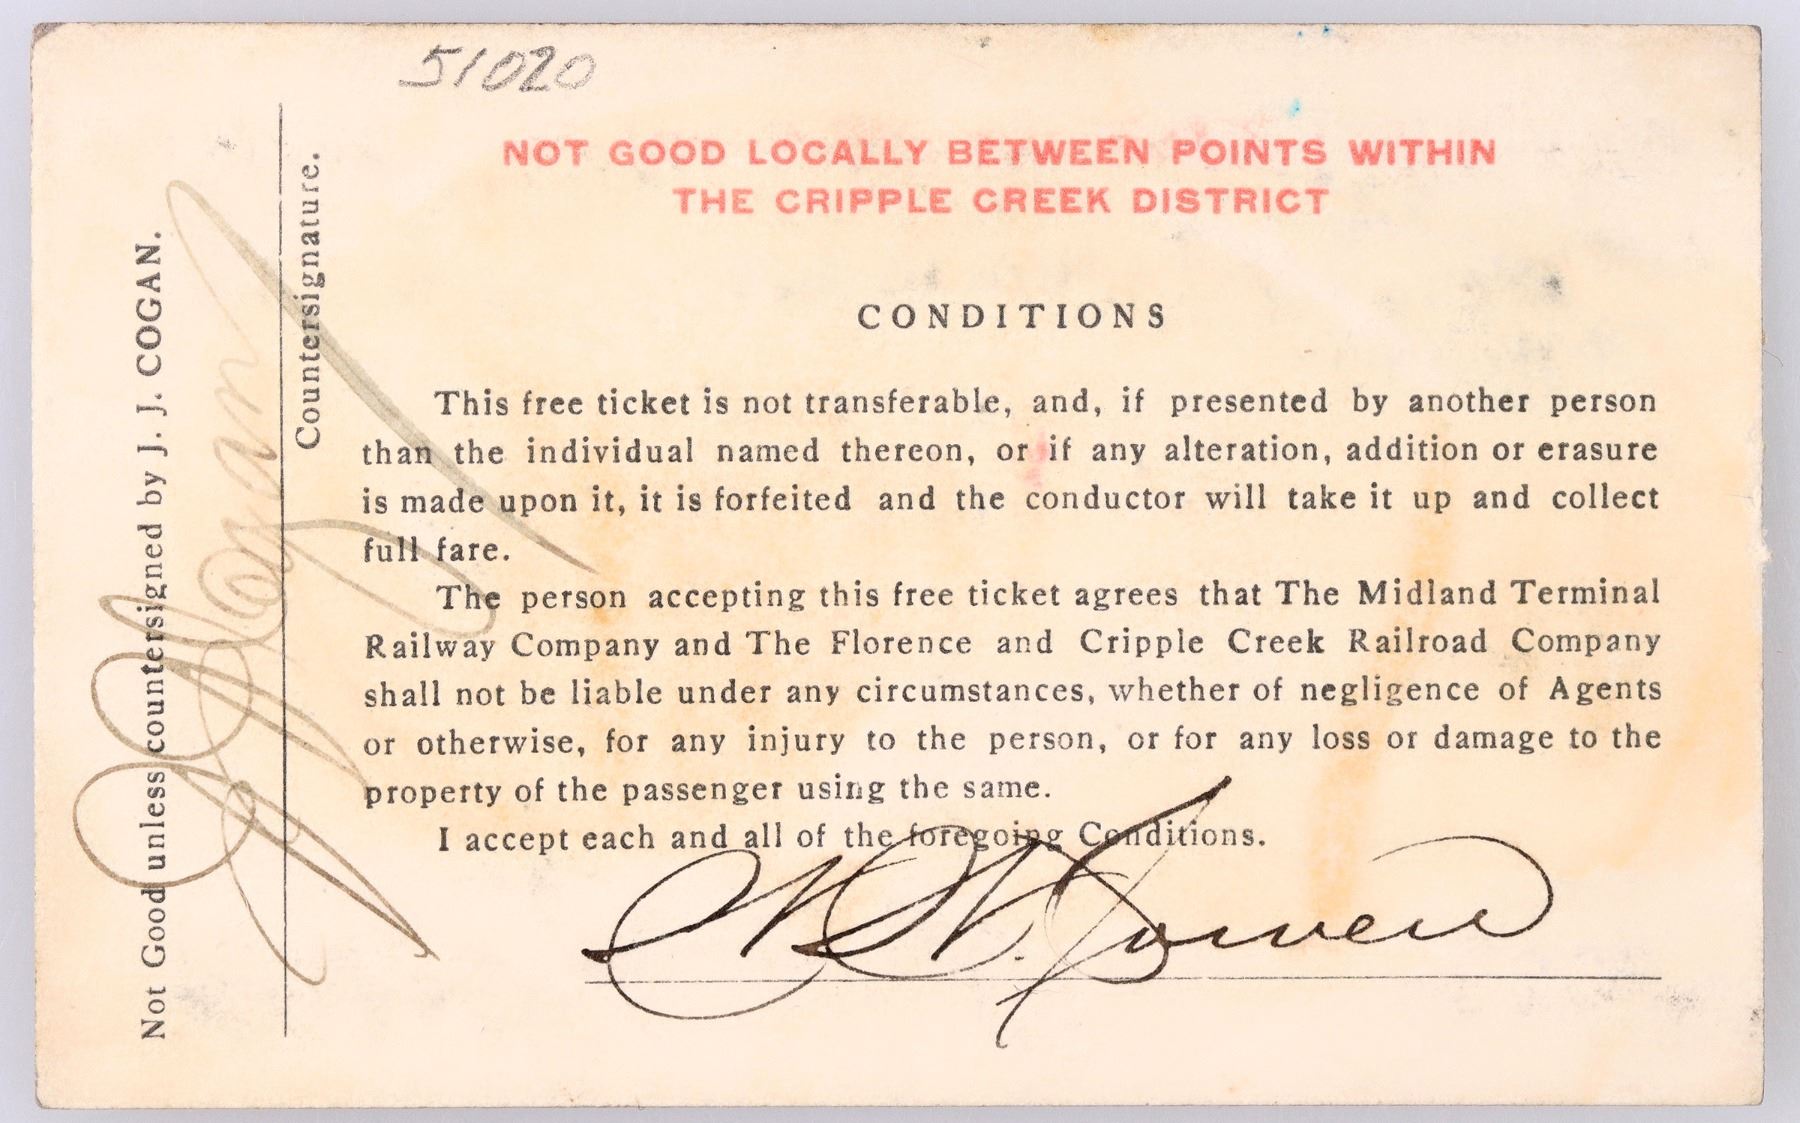 51020
NOT GOOD LOCALLY BETWEEN POINTS WITHIN
THE CRIPPLE CREEK DISTRICT
CONDITIONS
This free ticket is not transferable, and, if presented by another person
than the individual named thereon, or if any alteration, addition or erasure
is made upon it, it is forfeited and the conductor will take it up and collect
full fare.
The person accepting this free ticket agrees that The Midland Terminal
Railway Company and The Florence and Cripple Creek Railroad Company
shall not be liable under any circumstances, whether of negligence of Agents
or otherwise, for any injury to the person, or for any loss or damage to the
property of the passenger using the same.
I accept each and all of the foregoing Conditions.
Not Good unless countersigned by J. J. COGAN.
JJCogan
Countersignature.